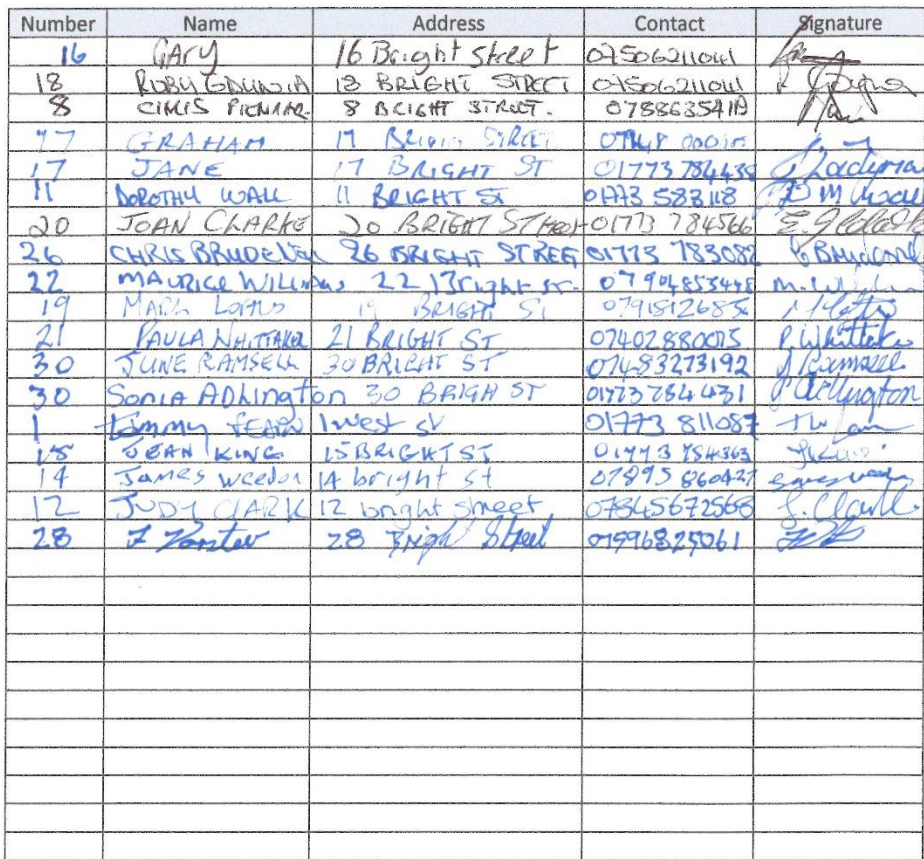 Number Name Address Contact Signature
16 GARY 16 Bright Street 07506211041
18 18 BRIGHT STREET 07506211041
8 8 BRIGHT STREET.
17 GRAHAM 17 STREET
17 JANE 17 BRIGHT ST 01773 784435
11 DOROTHY WALL 11 BRIGHT ST 01773 583118
20 JOAN CLARKE 20 BRIGHT STreet 01773 784566
26 CHRIS 26 BRIGHT STREET 01773 783082
22 MAURICE 22 Bright st. 07904853448
19 MARK 19 BRIGHT St
21 PAULA WHITTAKER 21 BRIGHT ST 07402880075 P. Whittaker
30 JUNE RAMSELL 30 BRIGHT ST 07483273192 J Ramsell
30 SONIA ADLINGTON 30 BRIGH ST 01773784431 Adlington
1 Timmy 1 West st 01773 811087
15 JEAN KING 15 BRIGHT ST 01773 784363
14 James Weedon 14 bright st 07895 860427
12 JUDY CLARK 12 bright street 07845672568 J. Clark
28 28 Street 07996825061